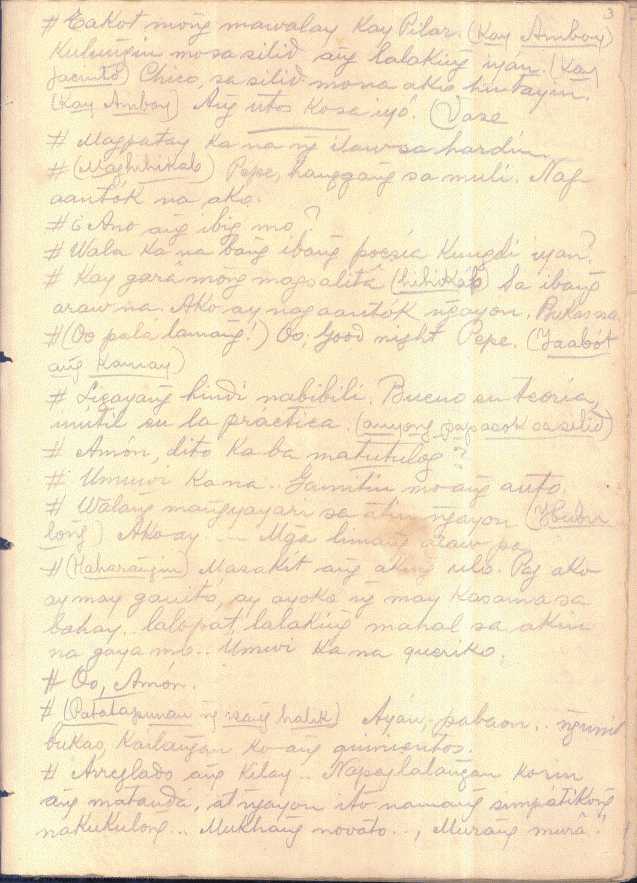 3
# Takot mong mawalay kay Pilar. (Kay Amboy)
Kulungin mo sa silid ang lalaking iyan. (Kay
Jacinto) Chico, sa silid mo na ako hintayin.
(Kay Amboy) Ang utos ko sa iyó. (Vase
# Magpatay ka na ng ilaw sa hardin.
# (Maghihikab) Pepe, hanggang sa muli. Nag-
aantók na ako.
# ¿Ano ang ibig mo?
# Wala ka na bang ibang poesía kungdi iyan?
# Kay garâ mong magsalitâ (hihikab) Sa ibang
araw na. Ako ay nagaantók ngayon. Bukas na.
# (Oo pala lamang!) Oo; Good night Pepe. (Iaabót
ang kamay)
# Ligayang hindi nabibili. Bueno en teoría,
inútil en la práctica. (anyong papasok sa silid)
# Amón, dito ka ba matutulog?
# Umuwi ka na.. Gamitin mo ang auto.
# Walang mangyayari sa atin ngayon
long) Ako ay .... Mga limang araw pa
# (Kaharangin) Masakit ang aking ulo. Pag ako
ay may ganitó, ay ayoko ng may kasama sa
bahay.. lalo pa't lalaking mahal sa akin
na gaya mo.. Umuwi ka na querido.
# Oo, Amón.
# (Patatapunan ng isang halik) Ayan, pabaon.. ngunit
bukas, kailangan ko ang quinientos.
# Arreglado ang kilay.. Napaglalangan ko rin
ang matandâ, at ngayon ito namang simpátikong
nakukulong... Mukhang novato.., Murang murâ!